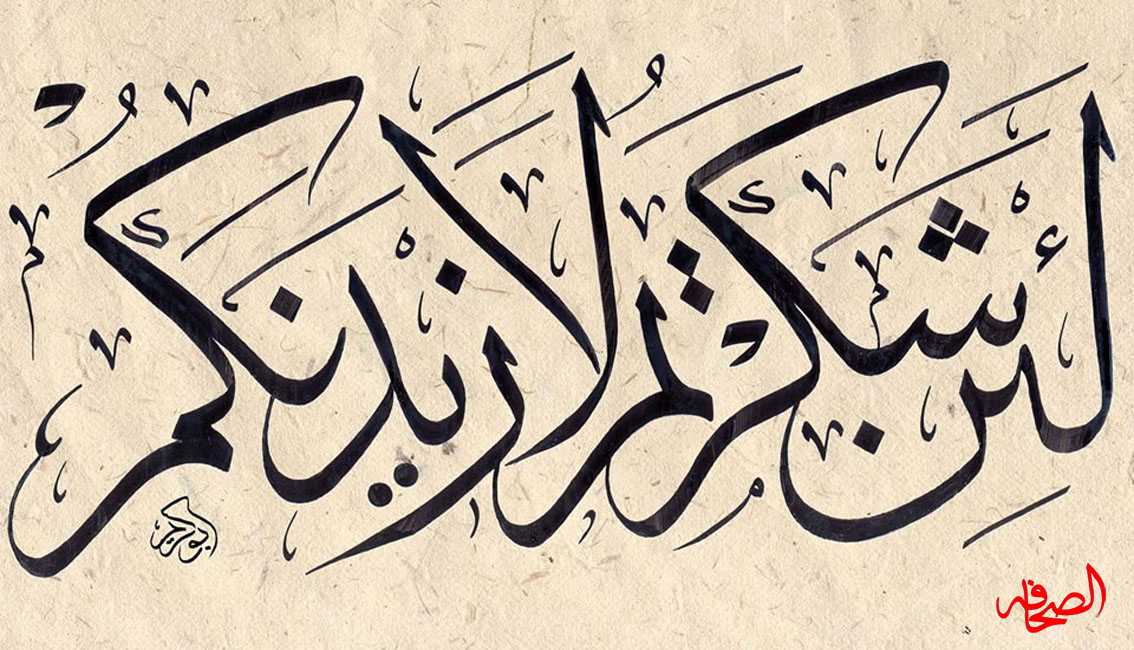 لئن شكرتم لأزيدنكم
الصحافه